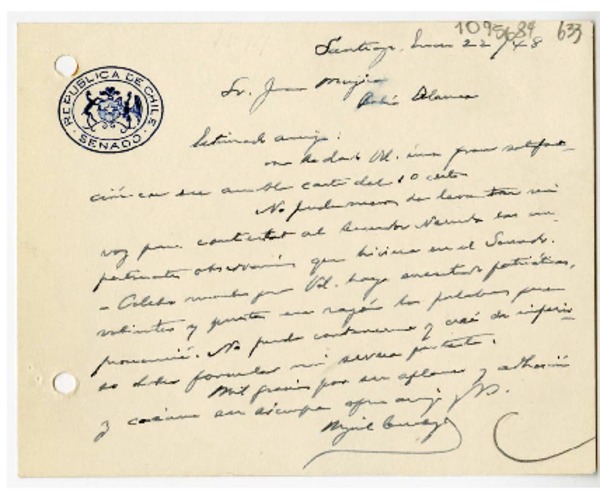 1095684 633
Santiago, Enero 22/48
REPUBLICA DE CHILE
SENADO
Sr. Juan Mujica
Bahía Blanca
Estimado amigo:
me ha dado Ud. una gran satisfac-
ción con su amable carta del 10 del cte
No pude menos de levantar mi
voz para contestar al Senador Neruda las im-
pertinentes observaciones que hiciera en el Senado.
- Celebro mucho que Ud. haya encontrado patrióticas,
valientes y puestas en razón las palabras que
pronuncié. No pude contenerme y creí de
deber formular mi severa protesta.
Mil gracias por su aplauso y adhesión
y créame su siempre afmo amigo y S.
Miguel Cruchaga